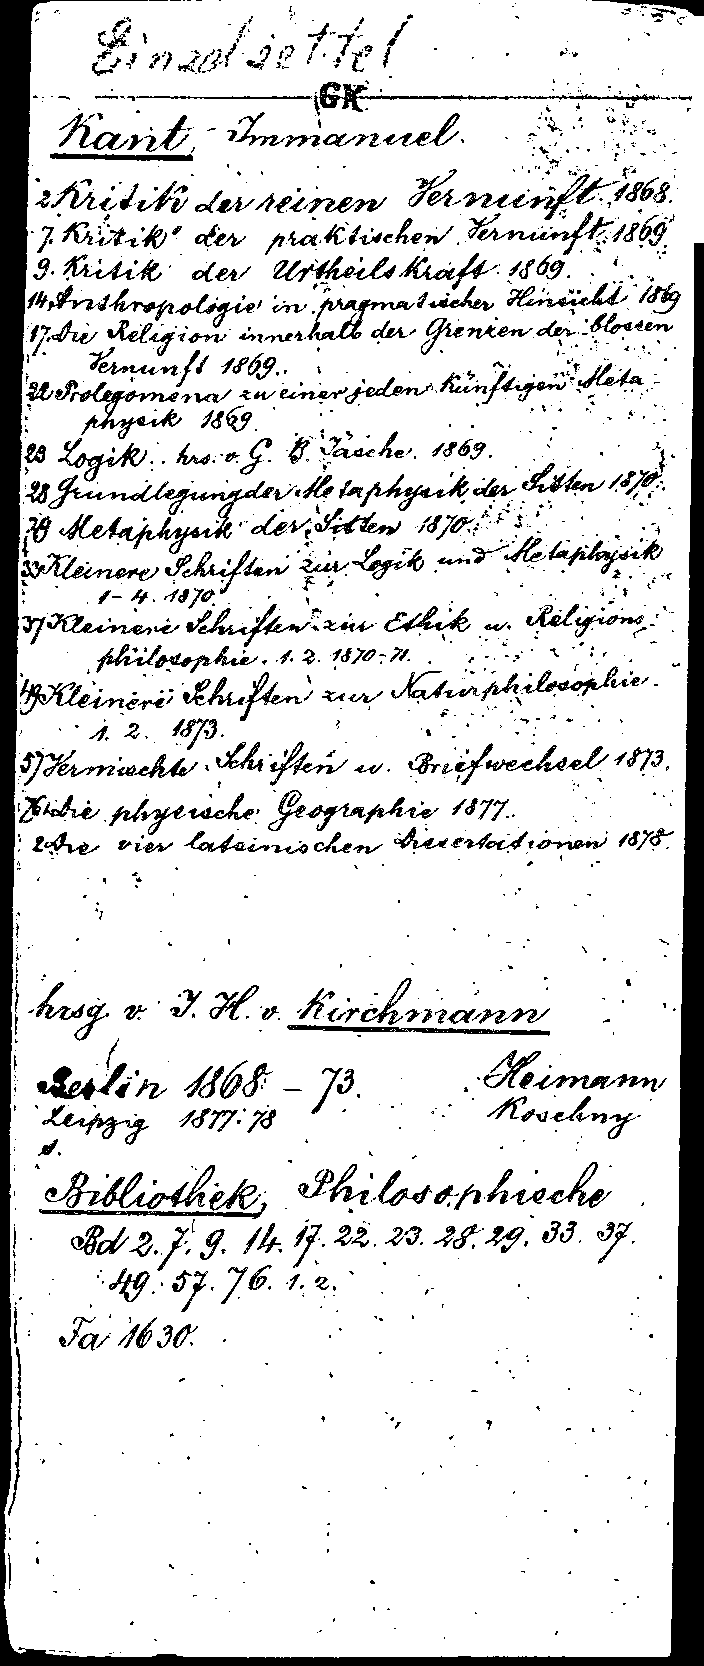 Einzelzettel
GK
Kant, Immanuel.
2 Kritik der reinen Vernunft. 1868.
7. Kritik der praktischen Vernunft. 1869.
9. Kritik der Urtheilskraft. 1869.
14. Anthropologie in pragmatischer Hinsicht 1869
17. Die Religion innerhalb der Grenzen der blossen
Vernunft 1869.
22 Prolegomena zu einer jeden künftigen Meta-
physik 1869.
23 Logik. hrs. v. G. B. Jäsche. 1869.
28 Grundlegung der Metaphysik der Sitten 1870.
29 Metaphysik der Sitten 1870.
33 Kleinere Schriften zur Logik und Metaphysik
1-4. 1870
37 Kleinere Schriften zur Ethik u. Religions-
philosophie. 1. 2. 1870-71.
49 Kleinere Schriften zur Naturphilosophie.
1. 2. 1873.
57 Vermischte Schriften u. Briefwechsel 1873.
76 1. Die physische Geographie 1877.
2 Die vier lateinischen Dissertationen 1878.
hrsg. v. J. H. v. Kirchmann
Berlin 1868 - 73. Heimann
Leipzig 1877-78 Koschny
s.
Bibliothek, Philosophische
Bd 2. 7. 9. 14. 17. 22. 23. 28. 29. 33. 37.
49. 57. 76. 1. 2.
Fa 1630.